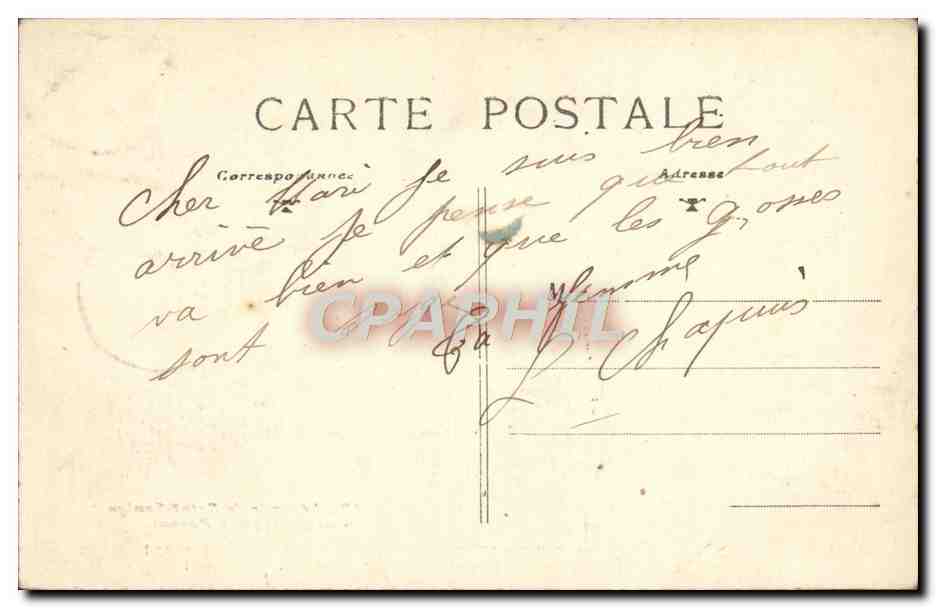 CARTE POSTALE
Correspondance
Adresse
Cher Mari je suis bien
arrivé je pense que tout
va bien et que les gosses
sont sage
Ta femme
Chapuis
M
CPAPHIL